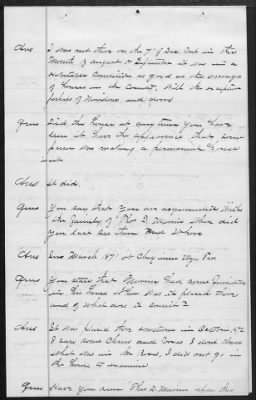 Ans I was not there on the 7" of Dec but in the
Month of August or September it was in a
habitable Condition as good as the average
of houses in the County, With the exception
of Windows and doors
Ques Did the house at any time you have
seen it have the appearance that some
person was making a permanent House
in it
Ans it did
Ques You say that you are acquainted With
the family of Thos D. when did
you last see them and Where
Ans 2nd March 1871 at Cheyenne
Ques You state that had some furniture
in his house When Was it placed there
and of what does it consist?
Ans It was placed there sometime in 1870
I saw some Chairs and I dont know
what was in the Boxes, I did not go in
the house to examine
Ques Have you seen Thos D. upon the